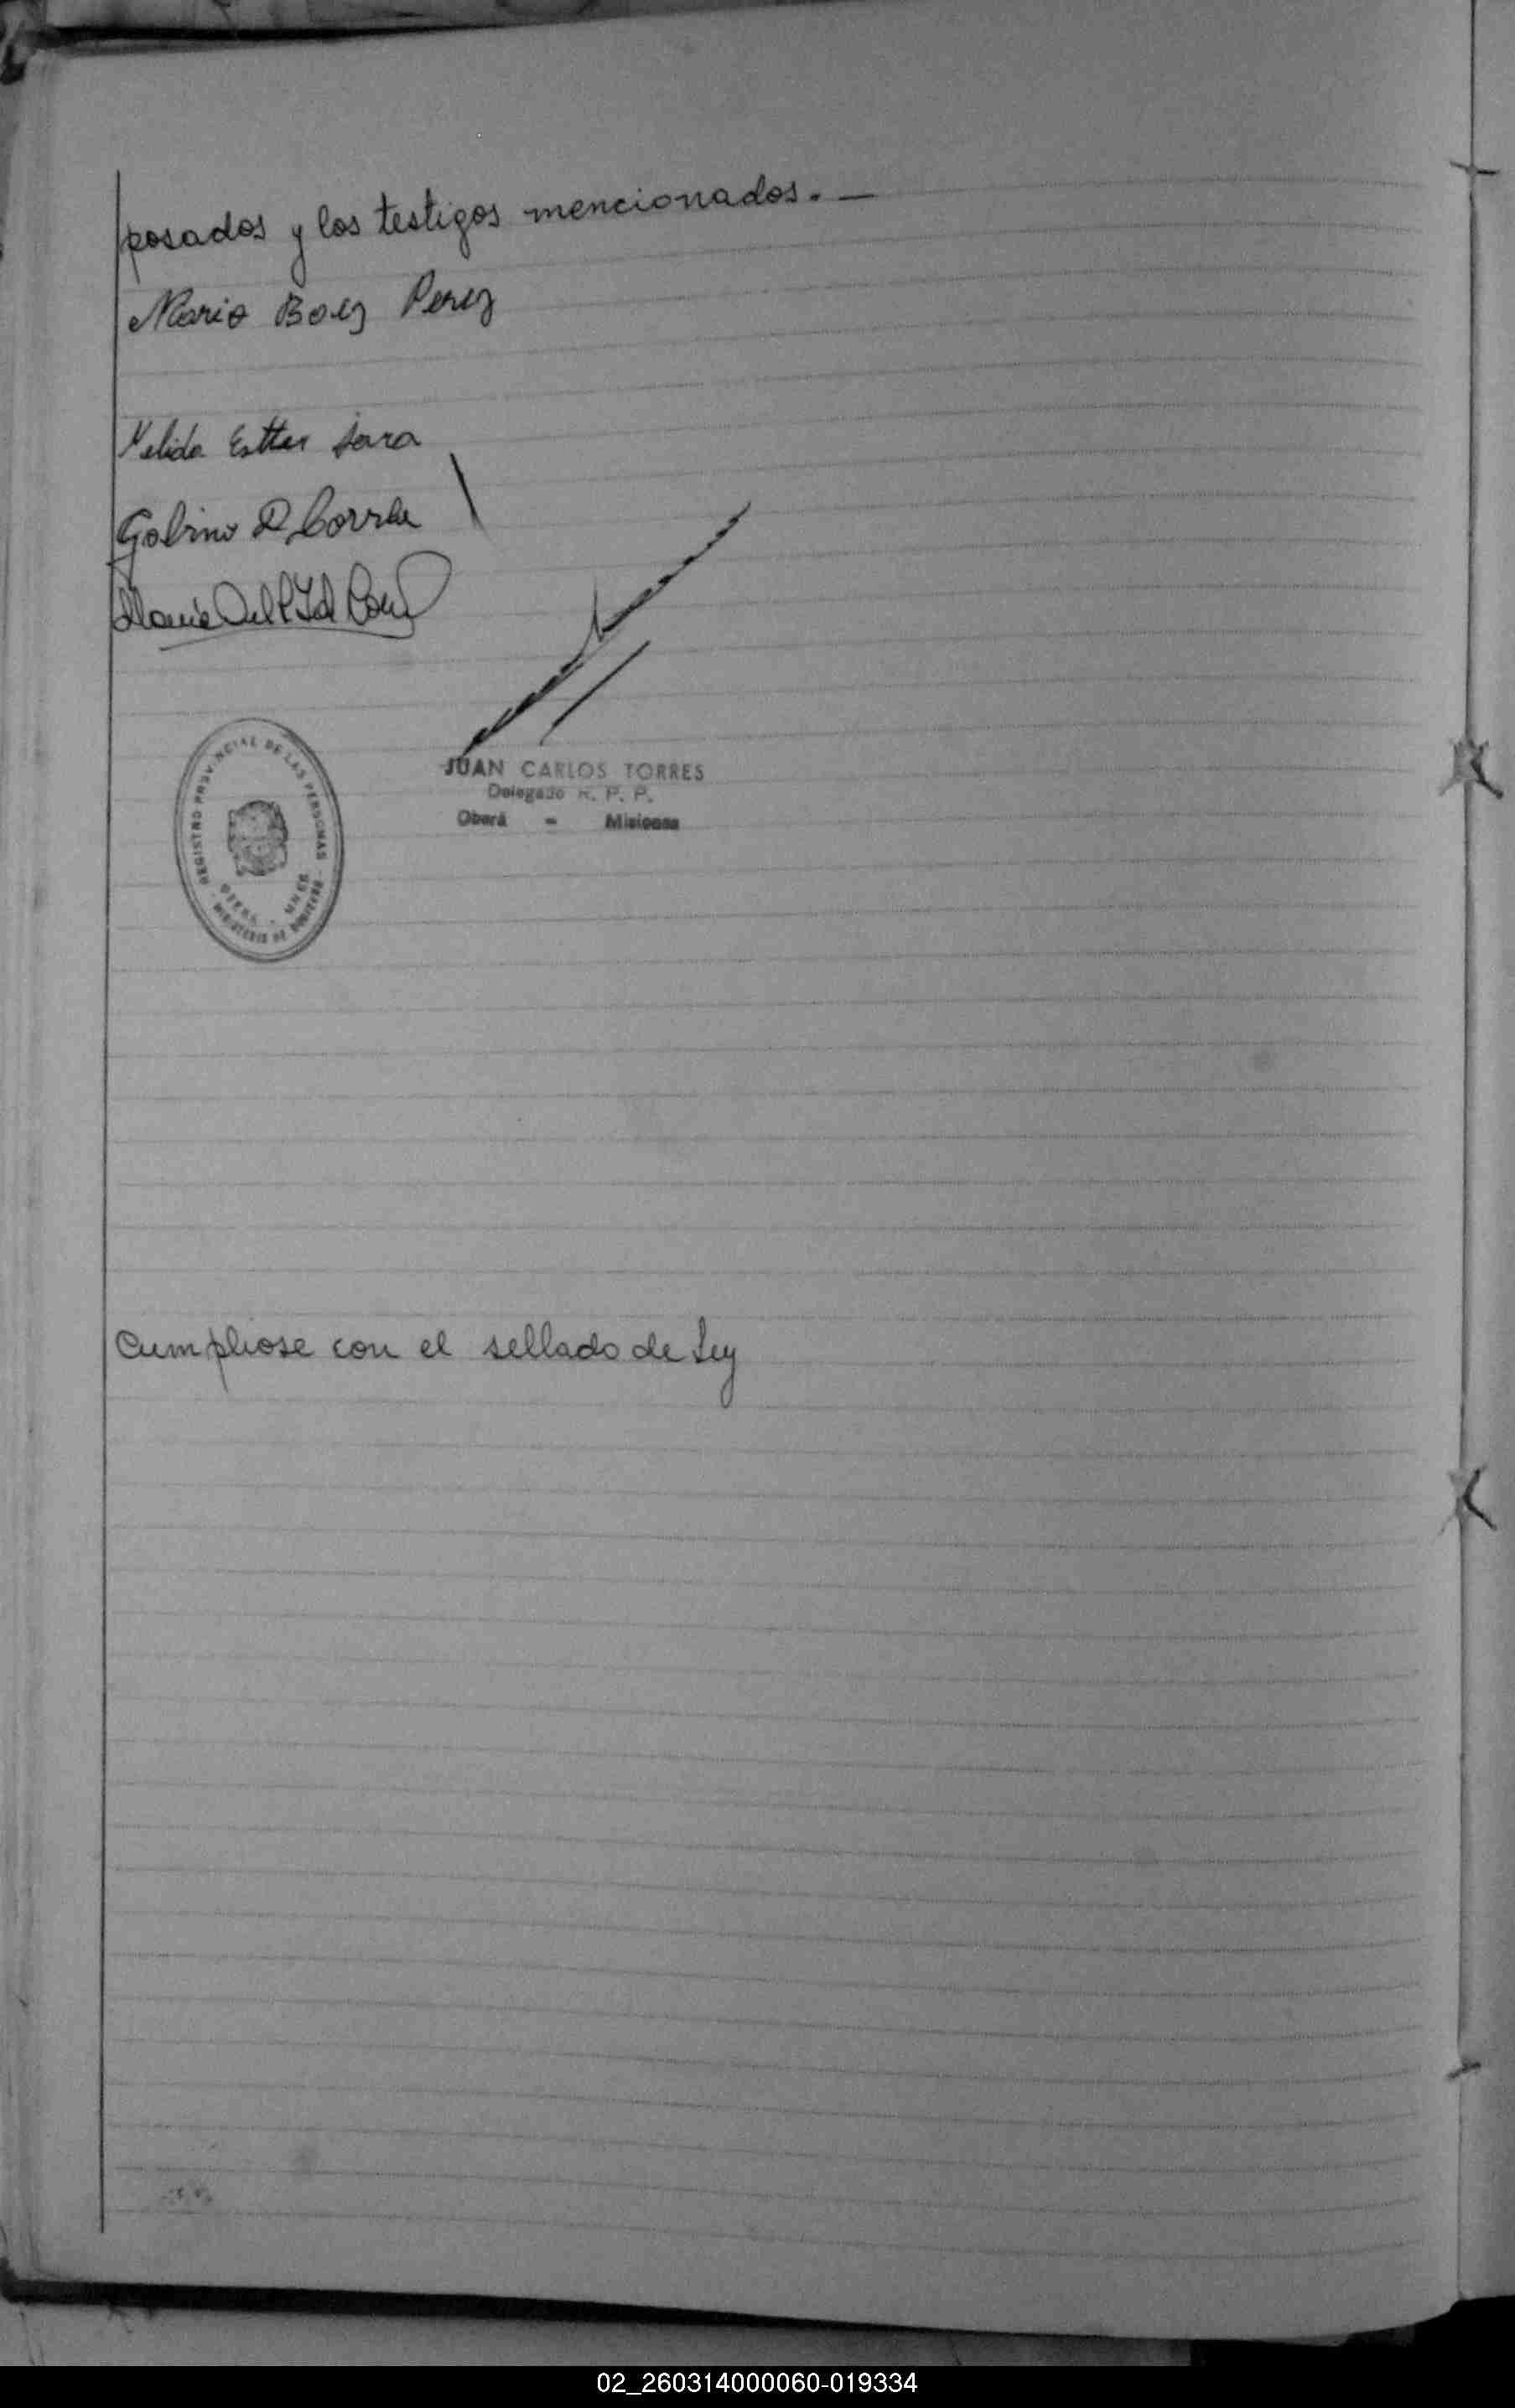 posados y los testigos mencionados. —
Mario Boez Perez
Nelida Esther Jara
Gabino R Correa
Maria Del
JUAN CARLOS TORRES
Delegado R. P. P.
Oberá - Misiones
REGISTRO PROVINCIAL DE LAS PERSONAS
MINISTERIO DE GOBIERNO
OBERA
Cumpliose con el sellado de Ley
02_260314000060-019334